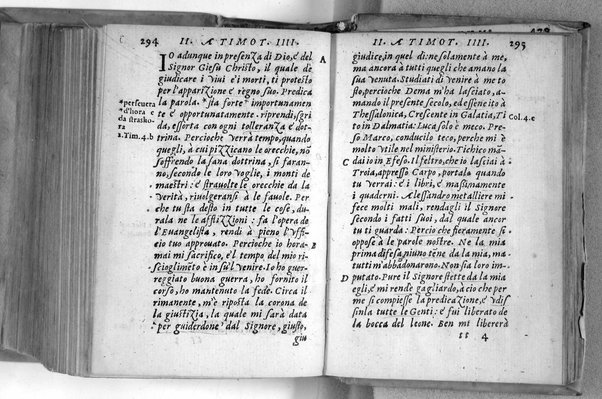 294 II. A TIMOT. IIII.
IO adunque in presenza di Dio, e del
Signor Giesu Christo, il quale de
giudicare i vivi e i morti, ti protesto
per l'apparizione e regno suo. Predica
la parola. *sia forte* importunamen
te e opportunatamente. riprendi, sgri
da, essorta con ogni tolleranza e dot-
trina. Percioche verrà tempo, quando
quegli, à cui pizzicano le orecchie, nõ
soffrendo la sana dottrina, si faran-
no, secondo le loro voglie, i monti de
maestri: e stravolte le orecchie da la
verità, rivolgeransi à le favole. Per
che tu sta desto in tutte le cose, du-
rala ne le afflizzioni: fa l'opera de
l'Evangelista, rendi à pieno l'Uffi-
cio tuo approvato. Percioche io hora-
mai mi sacrifico, e'l tempo del mio ri-
scioglimẽto e in su'l venire. Io ho guer-
reggiato buona guerra, ho fornito il
corso, ho mantenuto la fede. Circa il
rimanente, m'e riposta la corona de
la giustizia, la quale mi sarà data
per guiderdone dal Signore, giusto,
giu
*persevera
d'hora e
da strasho-
ra
2. Tim. 4. b
A
B
II. A TIMOT. IIII. 295
giudice, in quel dì: ne solamente à me,
ma ancora à tutti quegli che amano la
sua venuta. Studiati di venire à me to
sto, percioche Dema m'ha lasciato, a-
mando il presente secolo, ed essene ito à
Thessalonica, Crescente in Galatia, Ti
to in Dalmatia: Luca solo è meco. Pre-
so Marco, conducilo teco, perche mi è
molto utile nel ministerio. Tichico mã-
dai io in Efeso. Il feltro, che io lasciai à
Troia, appresso Carpo, portalo quando
tu verrai: e i libri, e massimamente
i quaderni. Alessandro metalliere mi
fece molti mali, rendagli il Signore
secondo i fatti suoi, dal quale ancor
tu ti guarda: Percio che fieramente si
oppose à le parole nostre. Ne la mia
prima difesa, niuno tẽne da la mia, ma
tutti m'abbadonarono. Non sia loro im-
putato. Pure il Signore stette da la mia
egli, e mi rende gagliardo, à cio che per
me si compiesse la predicazione, e udis
sinla tutte le Genti: e fui liberato de
la bocca del leone. Ben mi libererà
ss 4
Col. 4. c
C
D